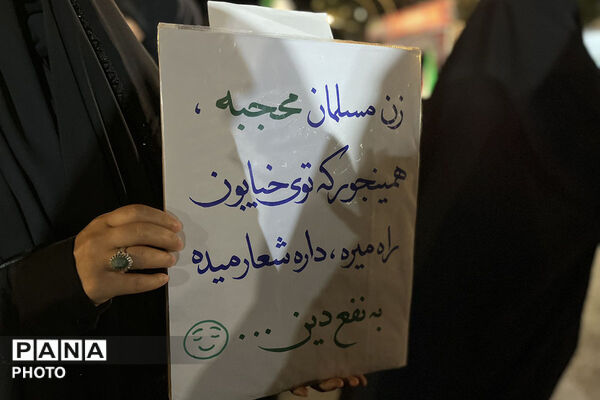 زن مسلمان محجبه ،
همینجور که توی خیابون
راه میره ، داره شعار میده
به نفع دین ...
PANA
PHOTO